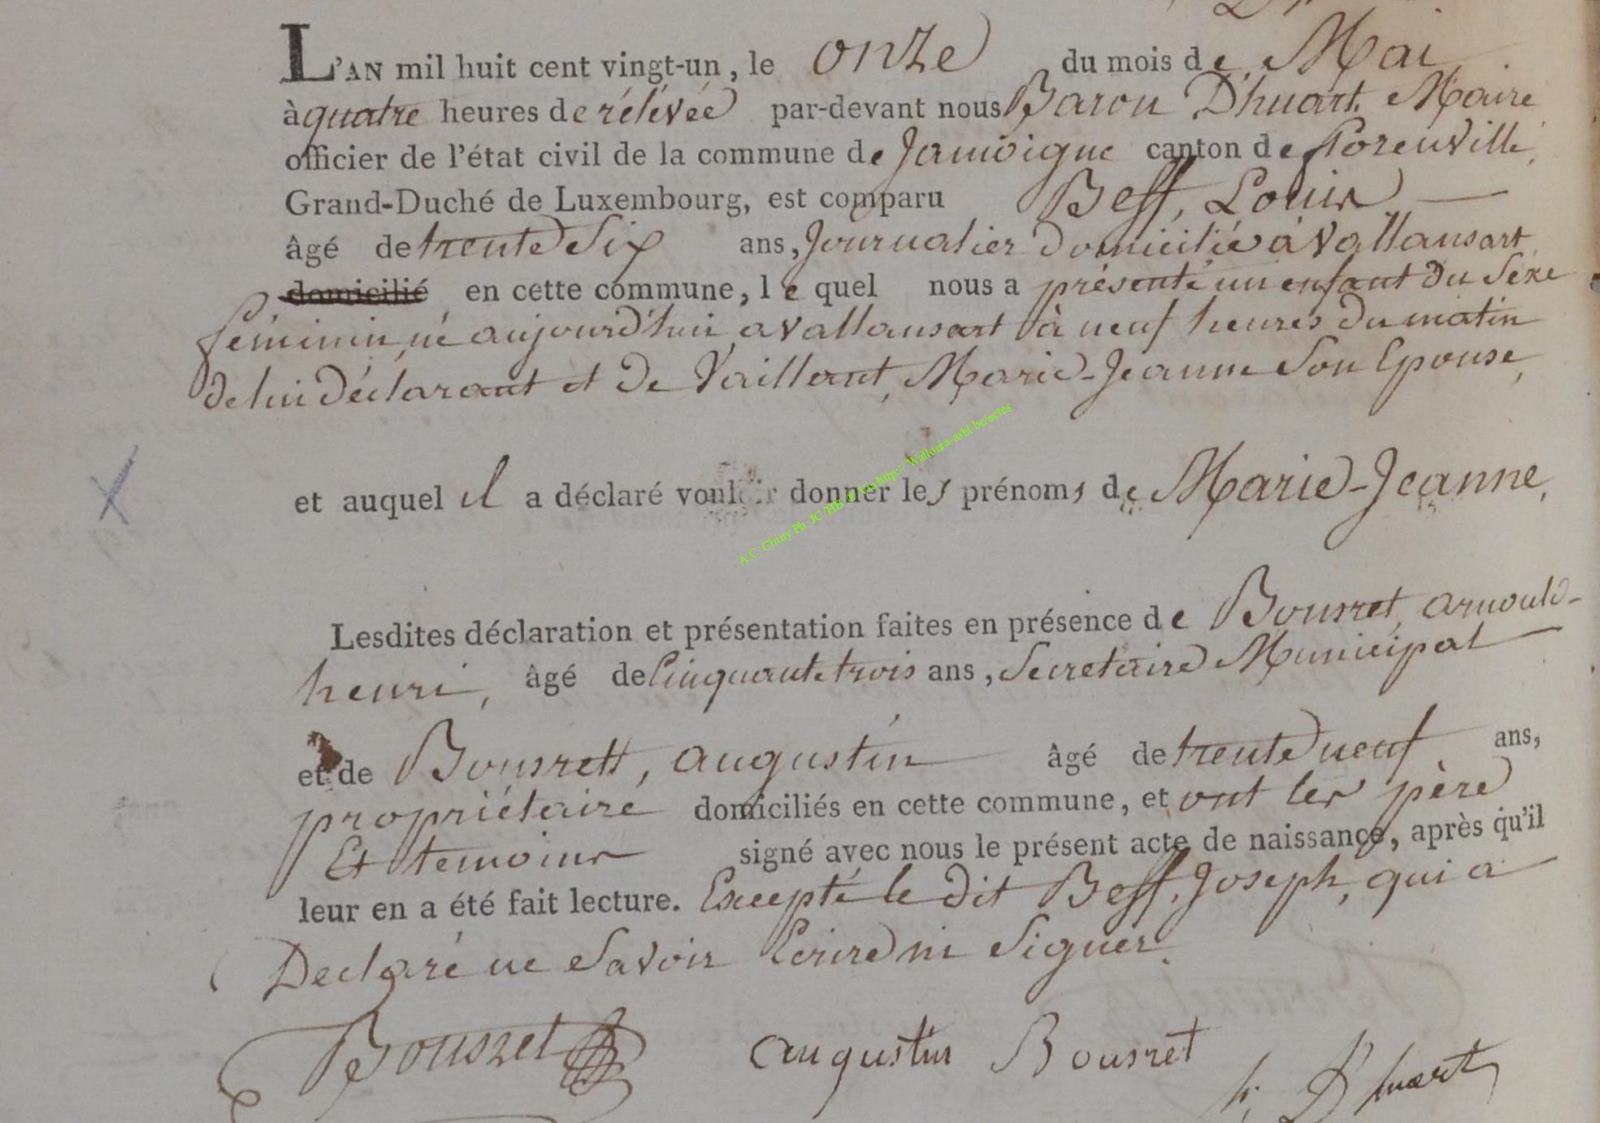 L'AN mil huit cent vingt-un, le onze du mois de Mai
à quatre heures de rélévée par-devant nous Baron D'huart, Maire
officier de l'état civil de la commune de Jamoigne canton de florenville,
Grand-Duché de Luxembourg, est comparu Beff, Louis
âgé de trente Six ans, Journalier domicilié à Vallansart
domicilié en cette commune, le quel nous a présenté un enfant du Sexe
féminin, né aujourd'hui, a vallansart à neuf heures du matin
de lui déclarant et de Vaillant, Marie-Jeanne Son Epouse,
et auquel il a déclaré vouloir donner les prénoms de Marie-Jeanne,
Lesdites déclaration et présentation faites en présence de Bousret, arnould-
henri, âgé de Cinquante trois ans, Secretaire Municipal
et de Bousrett, augustin âgé de trente neuf ans,
propriétaire domiciliés en cette commune, et ont les père
Et temoins signé avec nous le présent acte de naissance, après qu'il
leur en a été fait lecture. Excepté le dit Beff, Joseph, qui a
Declaré ne Savoir Ecrire ni Signer.
Bousret augustin Bousret D'huart